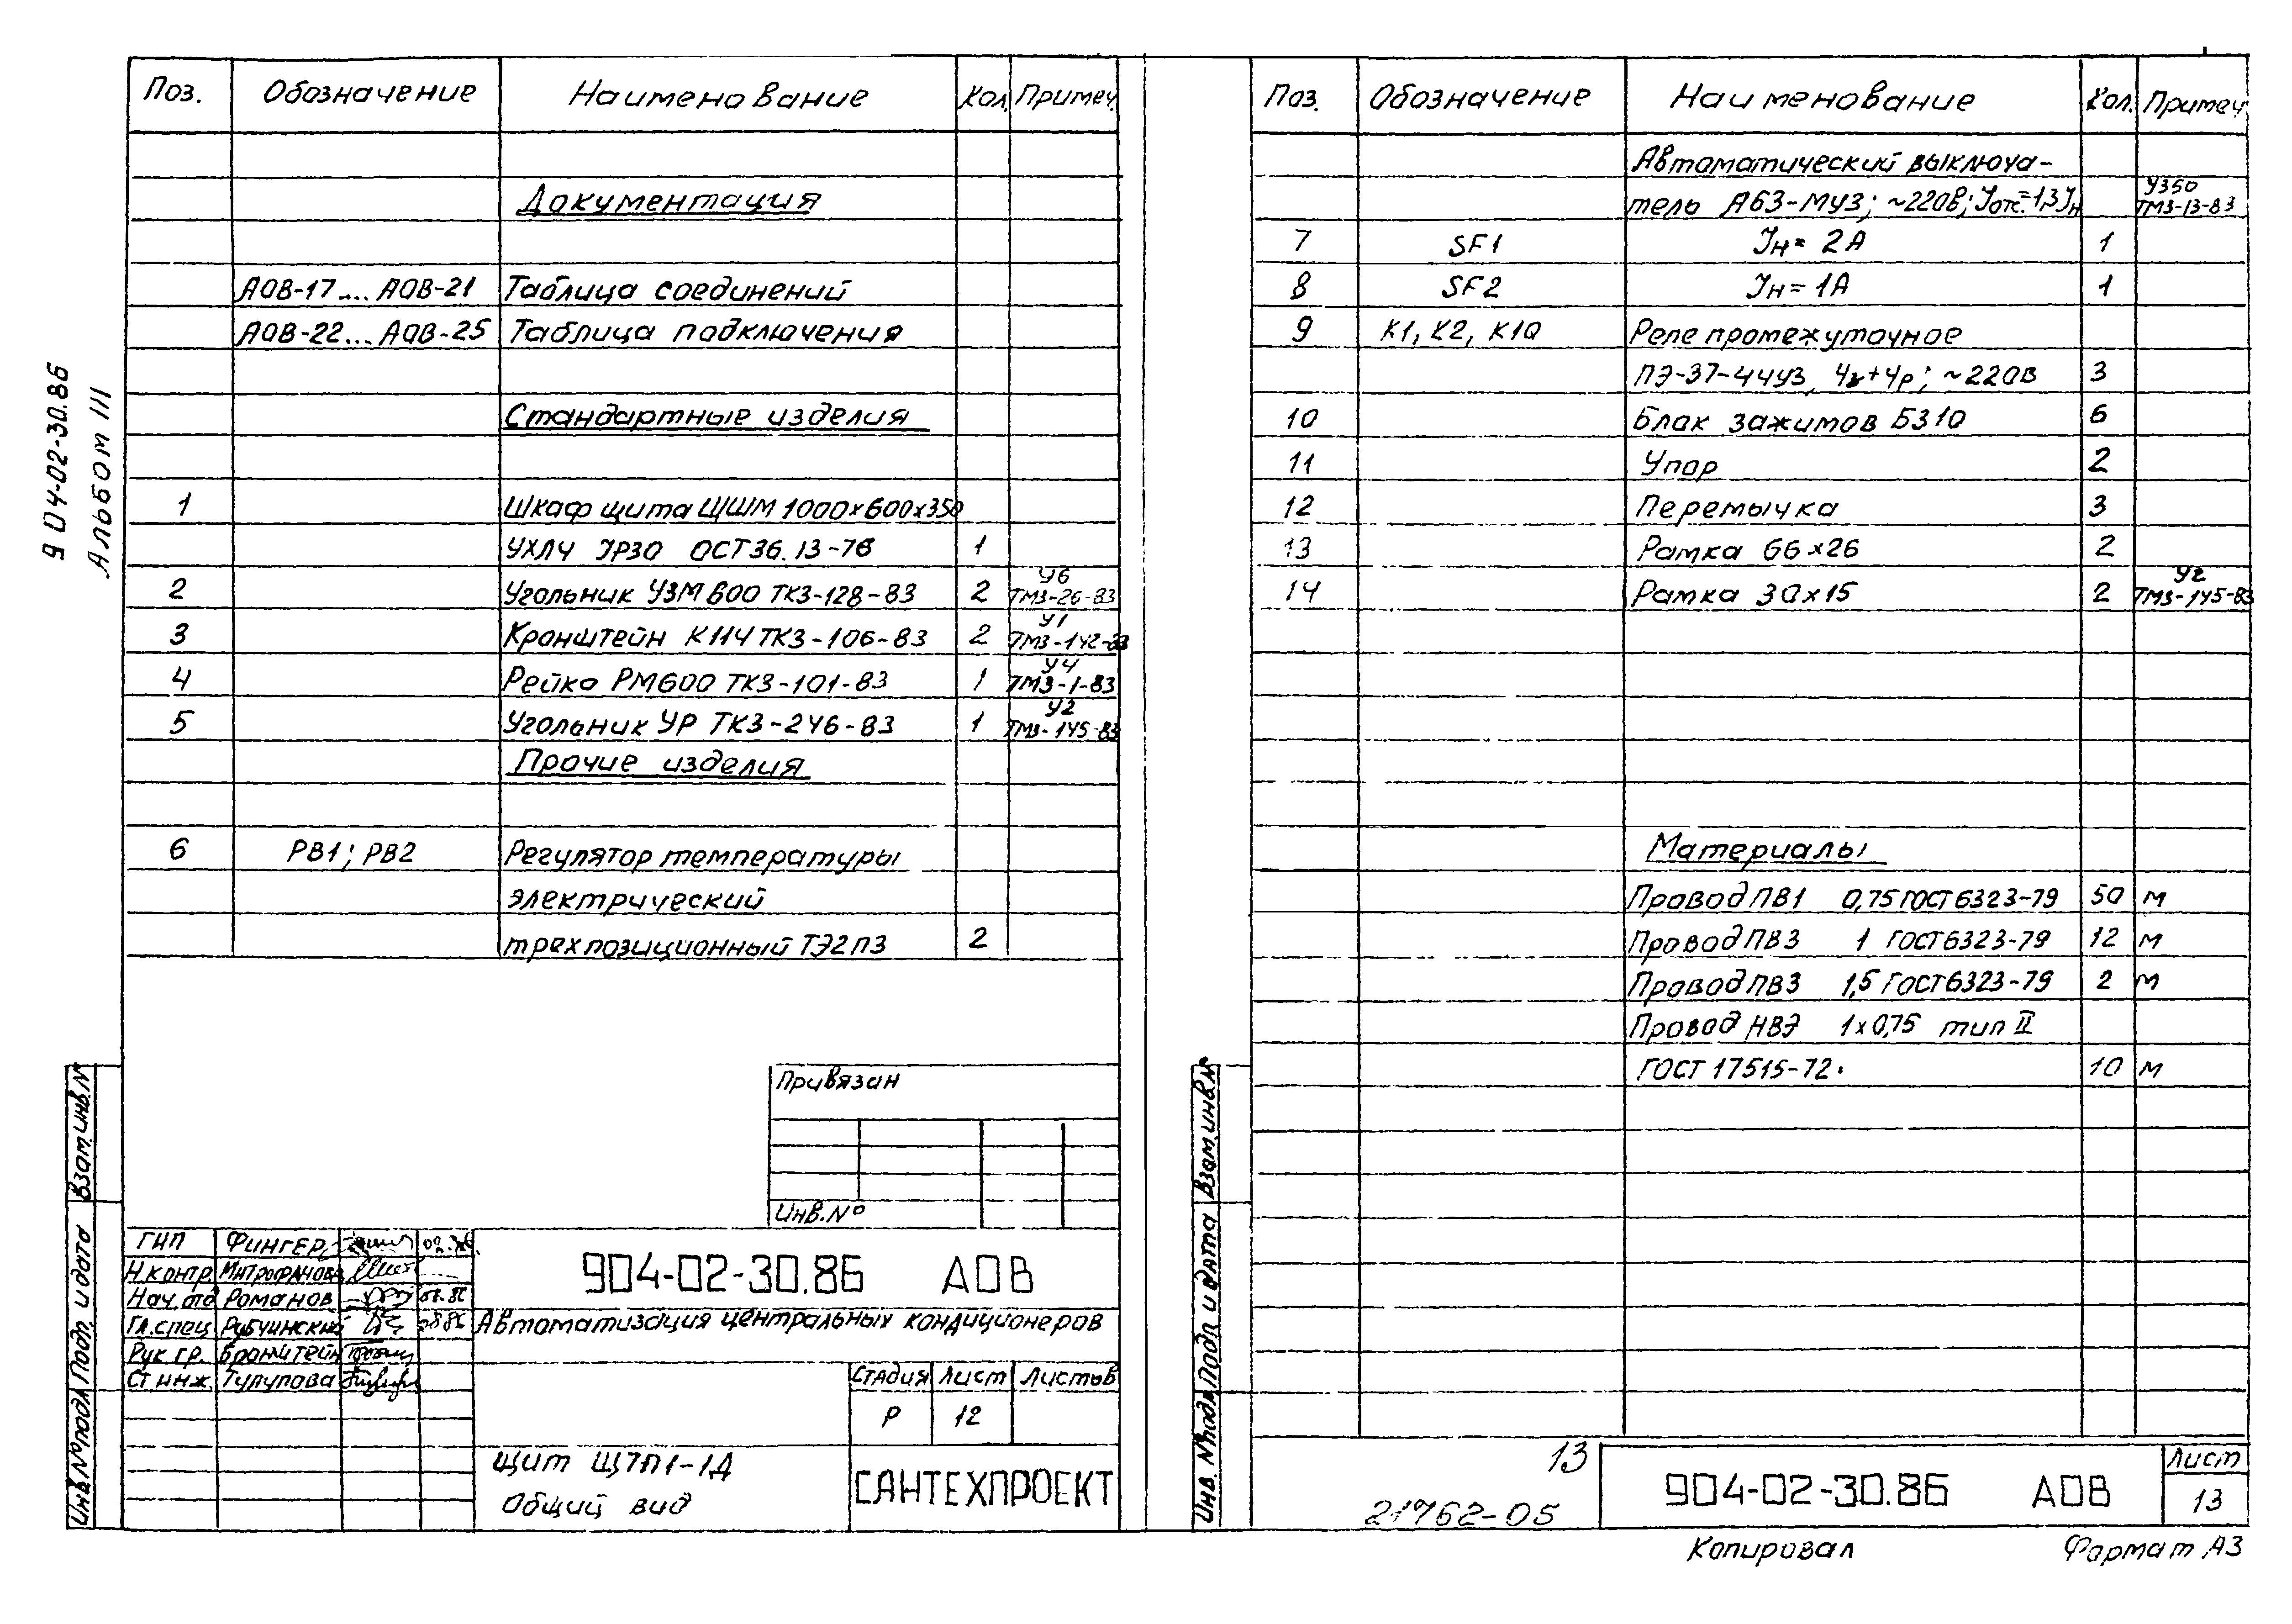 904-02-30.86
Альбом III
Поз. Обозначение Наименование Кол. Примеч.
Документация
АОВ-17... АОВ-21 Таблица соединений
АОВ-22... АОВ-25 Таблица подключения
Стандартные изделия
1 Шкаф щита ЩШМ 1000х600х350
УХЛ4 IP30 ОСТ36.13-76 1
2 Угольник УЗМ600 ТКЗ-128-83 2 У6 ТМ3-26-83
3 Кронштейн К114 ТКЗ-106-83 2 У1 ТМ3-142-83
4 Рейка РМ600 ТКЗ-101-83 1 У4 ТМ3-1-83
5 Угольник УР ТКЗ-246-83 1 У2 ТМ3-145-83
Прочие изделия
6 РВ1; РВ2 Регулятор температуры
электрический
трехпозиционный ТЭ2П3 2
Привязан
Инв.№
ГИП Фингер
Н.контр. Митрофанова
Нач.отд Романов
Гл.спец Рубчинский
Рук гр. Бронштейн
Ст инж. Тулупова
904-02-30.86 АОВ
Автоматизация центральных кондиционеров
Стадия Лист Листов
Р 12
Щит Щ7П1-1Д
Общий вид
САНТЕХПРОЕКТ
Взам.инв.№
Подп. и дата
Инв.№подл
Поз. Обозначение Наименование Кол. Примеч
Автоматический выключа-
тель А63-МУ3; ~220В; Iотс.=1,3Iн У350 ТМ3-13-83
7 SF1 Iн= 2А 1
8 SF2 Iн= 1А 1
9 К1, К2, К10 Реле промежуточное
ПЭ-37-44У3, 4з+4р; ~220В 3
10 Блок зажимов БЗ10 6
11 Упор 2
12 Перемычка 3
13 Рамка 66х26 2
14 Рамка 30х15 2 У2 ТМ3-145-83
Материалы
Провод ПВ1 0,75 ГОСТ6323-79 50 м
Провод ПВ3 1 ГОСТ6323-79 12 м
Провод ПВ3 1,5 ГОСТ6323-79 2 м
Провод НВЭ 1х0,75 тип II
ГОСТ 17515-72. 10 м
Взам.инв.№
Подп и дата
Инв. №подл
13
21762-05
904-02-30.86 АОВ
Лист
13
Копировал Формат А3